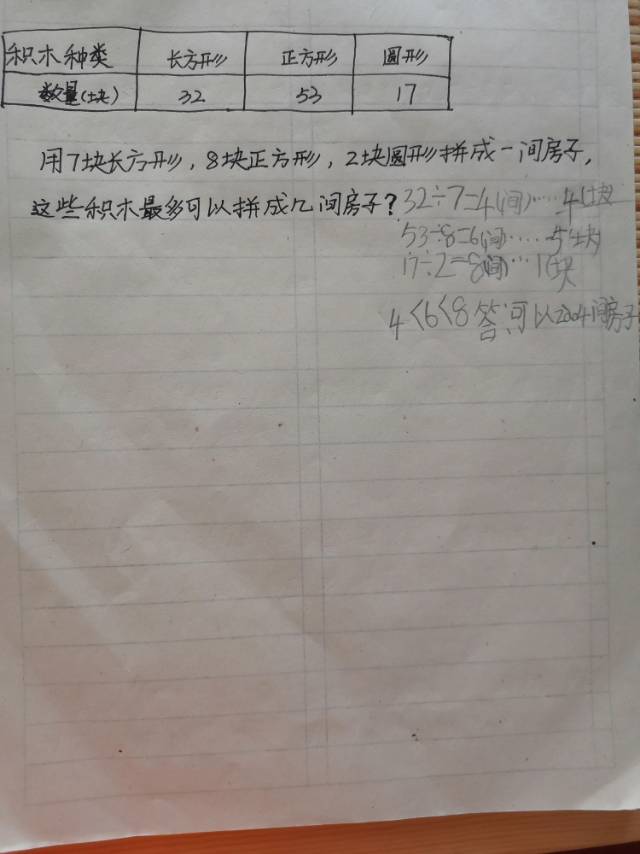 积木种类 长方形 正方形 圆形
数量(块) 32 53 17
用7块长方形,8块正方形,2块圆形拼成一间房子,
这些积木最多可以拼成几间房子?
32÷7=4(间)……4(块)
53÷8=6(间)……5(块)
17÷2=8(间)…1(块)
4<6<8 答:可以 4间房子